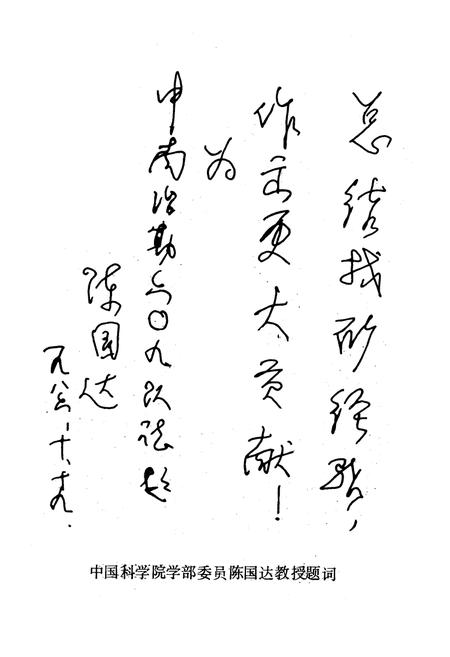 总结找矿经验，
作出更大贡献！
为
中南冶勘六〇九队志题
陈国达
一九八六、十、十九.
中国科学院学部委员陈国达教授题词